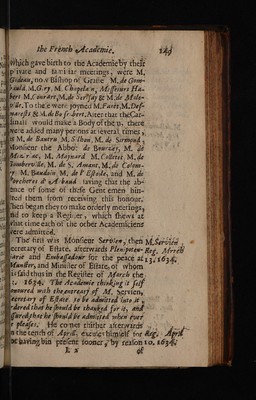 the French Academie. 149
which gave birth to the Academie by these
private and familiar meetings, were M.
Gideau, now Bishop of Grasse M. de Gom-
bauld, M. Gery. M. Chapelain, Messieurs Ha-
bert M. Conrart, M. de Serisay & M. de Male-
ville. To these were joyned M. Faret, M. Des-
marests & M. de Bois-Robert. After that the Car-
dinall would make a Body of them, there
were added many persons at severall times,
as M. de Bautru M. Silhon, M. de Sirmond,
Monsieur the Abbot de Bourzay, M. de
Meziriac, M. Maynard, M. Colletet, M. de
Gomberville, M. de S. Amant, M. de Colom-
by M. Baudoin, M. de l'Estoile, and M. de
Porcheres d'Arbaud saving that the ab-
sence of some of these Gentlemen hin-
dred them from receiving this honour.
Then began they to make orderly meetings,
and to keep a Register, which shews at
what time each of the other Academiciens
were admitted.
The first was Monsieur Servien, then M. Servien
Secretary of Estate, afterwards Plenipoten- Reg. March
tiarie and Embassadour for the peace at 13. 1634.
Munster, and Minister of Estate, of whom
it is said thus in the Register of March the
13. 1634. The Academie thinking it self
honoured with the entreaty of M. Servien,
Secretary of Estate, to be admitted into it,
ordered that he should be thanked for it, and
assured that he should be admitted when ever
he pleases. He comes thither afterwards
on the tenth of April, excuses himself for Reg. April
not having bin present sooner, by reason 10. 1634.
L 3 of